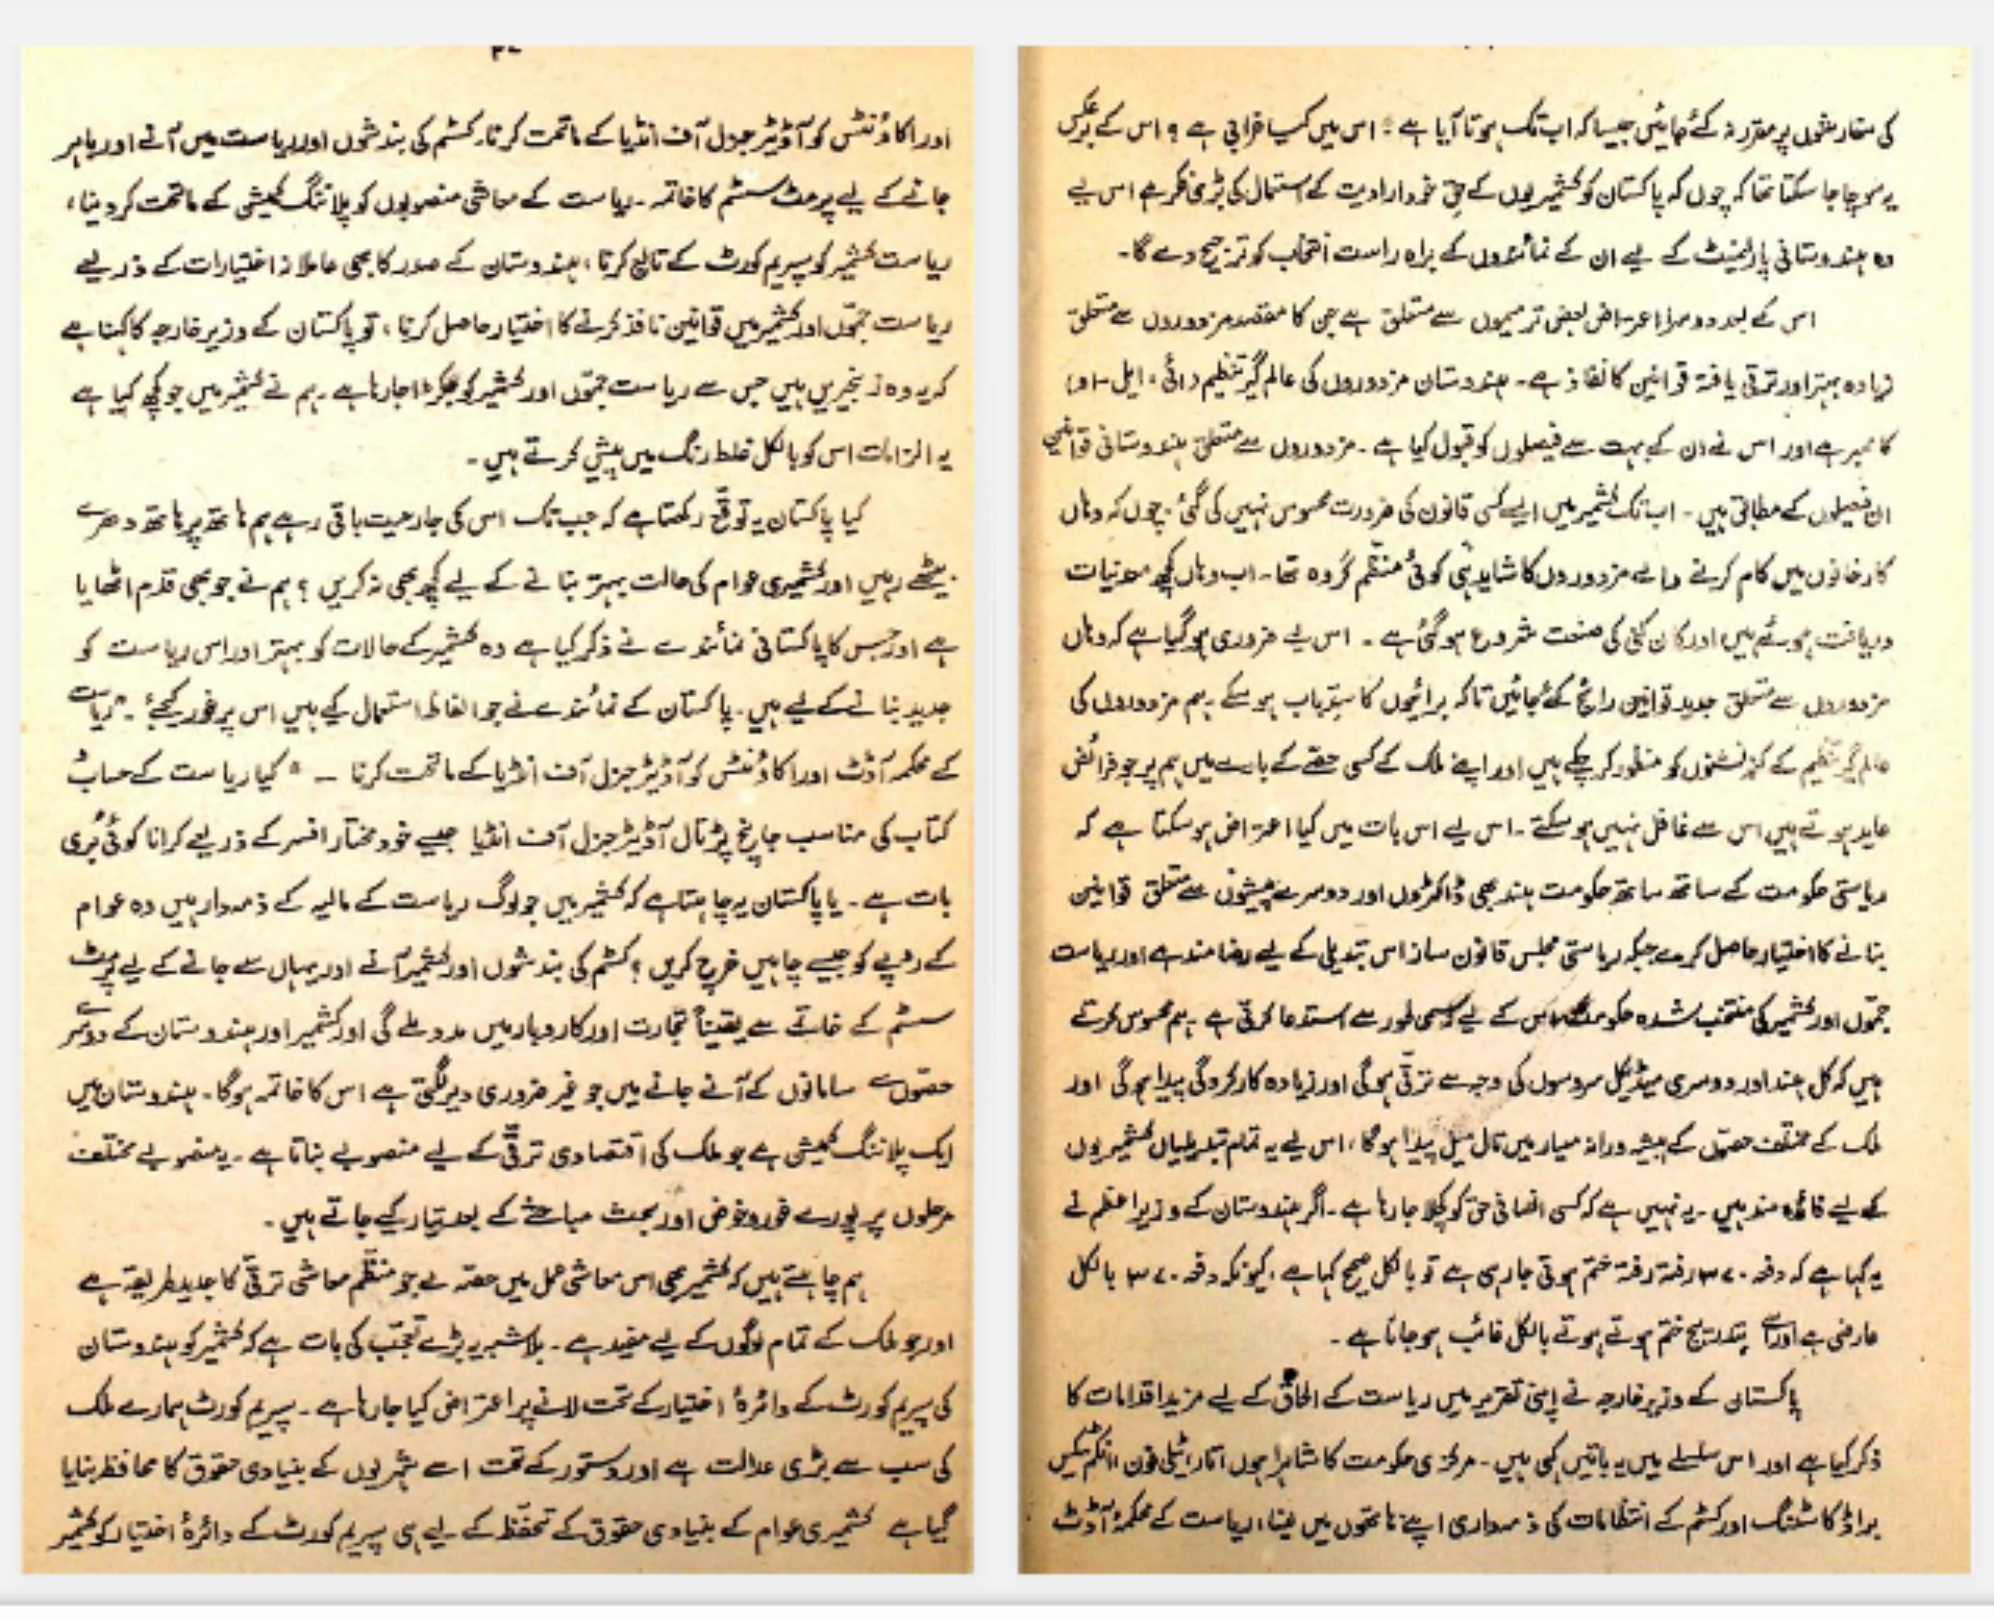 کی سفارشوں پر مقرر نہ کئے جائیں جیسا کہ اب تک ہوتا آیا ہے؛ اس میں کیا خرابی ہے؟ اس کے برعکس
یہ سوچا جا سکتا تھا کہ چوں کہ پاکستان کو کشمیریوں کے حقِ خود ارادیت کے استعمال کی بڑی فکر ہے اس لیے
وہ ہندوستانی پارلیمنٹ کے لیے ان کے نمائندوں کے براہ راست انتخاب کو ترجیح دے گا۔
اس کے بعد دوسرا اعتراض بعض ترمیموں سے متعلق ہے جن کا مقصد مزدوروں سے متعلق
زیادہ بہتر اور ترقی یافتہ قوانین کا نفاذ ہے۔ ہندوستان مزدوروں کی عالم گیر تنظیم (آئی۔ایل۔او)
کا ممبر ہے اور اس نے ان کے بہت سے فیصلوں کو قبول کیا ہے۔ مزدوروں سے متعلق ہندوستانی قوانین
ان فیصلوں کے مطابق ہیں۔ اب تک کشمیر میں ایسے کسی قانون کی ضرورت محسوس نہیں کی گئی۔ چوں کہ وہاں
کارخانوں میں کام کرنے والے مزدوروں کا شاید ہی کوئی منظم گروہ تھا۔ اب وہاں کچھ معدنیات
دریافت ہوئے ہیں اور کان کنی کی صنعت شروع ہو گئی ہے۔ اس لیے ضروری ہو گیا ہے کہ وہاں
مزدوروں سے متعلق جدید قوانین رائج کئے جائیں تاکہ برائیوں کا سدِّباب ہو سکے۔ ہم مزدوروں کی
عالم گیر تنظیم کے کنونشنوں کو منظور کر چکے ہیں اور اپنے ملک کے کسی حصے کے بارے میں ہم پر جو فرائض
عاید ہوتے ہیں اس سے غافل نہیں ہو سکتے۔ اس لیے اس بات میں کیا اعتراض ہو سکتا ہے کہ
ریاستی حکومت کے ساتھ ساتھ حکومت ہند بھی ڈاکٹروں اور دوسرے پیشوں سے متعلق قوانین
بنانے کا اختیار حاصل کرے جبکہ ریاستی مجلس قانون ساز اس تبدیلی کے لیے رضامند ہے اور ریاست
جموں اور کشمیر کی منتخب شدہ حکومت اس کے لیے رسمی طور سے استدعا کرتی ہے۔ ہم محسوس کرتے
ہیں کہ کل ہند اور دوسری میڈیکل سروسوں کی وجہ سے ترقی ہو گی اور زیادہ کارکردگی پیدا ہو گی اور
ملک کے مختلف حصوں کے پیشہ ورانہ معیار میں تال میل پیدا ہو گا، اس لیے یہ تمام تبدیلیاں کشمیریوں
کے لیے فائدہ مند ہیں۔ یہ نہیں ہے کہ کسی انصافی حق کو کچلا جا رہا ہے۔ اگر ہندوستان کے وزیر اعظم نے
یہ کہا ہے کہ دفعہ ۳۷۰ رفتہ رفتہ ختم ہوتی جا رہی ہے تو بالکل صحیح کہا ہے، کیونکہ دفعہ ۳۷۰ بالکل
عارضی ہے اور اسے بتدریج ختم ہوتے ہوتے بالکل غائب ہو جانا ہے۔
پاکستان کے وزیر خارجہ نے اپنی تقریر میں ریاست کے الحاق کے لیے مزید اقدامات کا
ذکر کیا ہے اور اس سلسلے میں یہ باتیں کہی ہیں۔ مرکزی حکومت کا شاہراہوں، تار، ٹیلی فون، انکم ٹیکس
براڈکاسٹنگ اور کسٹم کے انتظامات کی ذمہ داری اپنے ہاتھوں میں لینا، ریاست کے محکمۂ آڈٹ
اور اکاؤنٹس کو آڈیٹر جنرل آف انڈیا کے ماتحت کرنا۔ کسٹم کی بندشوں اور ریاست میں آنے اور باہر
جانے کے لیے پرمٹ سسٹم کا خاتمہ۔ ریاست کے معاشی منصوبوں کو پلاننگ کمیشن کے ماتحت کر دینا،
ریاست کشمیر کو سپریم کورٹ کے تابع کرنا، ہندوستان کے صدر کا بھی عاملانہ اختیارات کے ذریعے
ریاست جموں اور کشمیر میں قوانین نافذ کرنے کا اختیار حاصل کرنا، تو پاکستان کے وزیر خارجہ کا کہنا ہے
کہ یہ وہ زنجیریں ہیں جس سے ریاست جموں اور کشمیر کو جکڑا جا رہا ہے۔ ہم نے کشمیر میں جو کچھ کیا ہے
یہ الزامات اس کو بالکل غلط رنگ میں پیش کرتے ہیں۔
کیا پاکستان یہ توقع رکھتا ہے کہ جب تک اس کی جارحیت باقی رہے ہم ہاتھ پر ہاتھ دھرے
بیٹھے رہیں اور کشمیری عوام کی حالت بہتر بنانے کے لیے کچھ بھی نہ کریں؟ ہم نے جو بھی قدم اٹھایا
ہے اور جس کا پاکستانی نمائندے نے ذکر کیا ہے وہ کشمیر کے حالات کو بہتر اور اس ریاست کو
جدید بنانے کے لیے ہیں۔ پاکستان کے نمائندے نے جو الفاظ استعمال کیے ہیں اس پر غور کیجئے۔ "ریاست
کے محکمہ آڈٹ اور اکاؤنٹس کو آڈیٹر جنرل آف انڈیا کے ماتحت کرنا ــ" کیا ریاست کے حساب
کتاب کی مناسب جانچ پڑتال آڈیٹر جنرل آف انڈیا جیسے خود مختار افسر کے ذریعے کرانا کوئی بُری
بات ہے۔ یا پاکستان یہ چاہتا ہے کہ کشمیر میں جو لوگ ریاست کے مالیہ کے ذمہ دار ہیں وہ عوام
کے روپے کو جیسے چاہیں خرچ کریں؟ کسٹم کی بندشوں اور کشمیر آنے اور یہاں سے جانے کے لیے پرمٹ
سسٹم کے خاتمے سے یقیناً تجارت اور کاروبار میں مدد ملے گی اور کشمیر اور ہندوستان کے دوسرے
حصوں سے سامانوں کے آنے جانے میں جو غیر ضروری دیر لگتی ہے اس کا خاتمہ ہو گا۔ ہندوستان میں
ایک پلاننگ کمیشن ہے جو ملک کی اقتصادی ترقی کے لیے منصوبے بناتا ہے۔ یہ منصوبے مختلف
مرحلوں پر پورے غور و خوض اور بحث مباحثے کے بعد تیار کیے جاتے ہیں۔
ہم چاہتے ہیں کہ کشمیر بھی اس معاشی عمل میں حصہ لے جو منظم معاشی ترقی کا جدید طریقہ ہے
اور جو ملک کے تمام لوگوں کے لیے مفید ہے۔ بلاشبہ یہ بڑے تعجب کی بات ہے کہ کشمیر کو ہندوستان
کی سپریم کورٹ کے دائرۂ اختیار کے تحت لانے پر اعتراض کیا جا رہا ہے۔ سپریم کورٹ ہمارے ملک
کی سب سے بڑی عدالت ہے اور دستور کے تحت اسے شہریوں کے بنیادی حقوق کا محافظ بنایا
گیا ہے کشمیری عوام کے بنیادی حقوق کے تحفظ کے لیے ہی سپریم کورٹ کے دائرۂ اختیار کو کشمیر